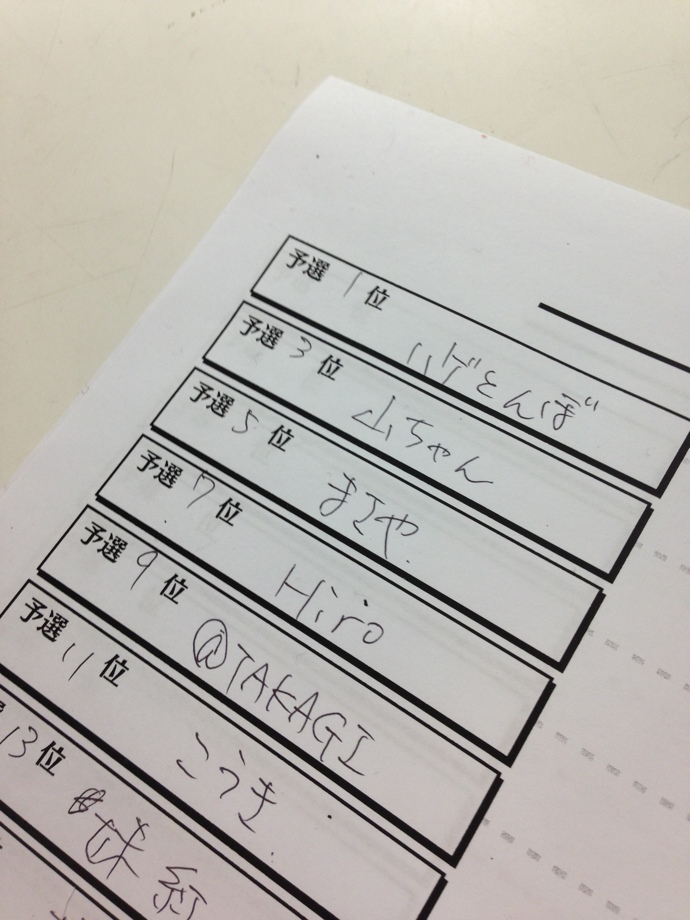 予選 1 位
ハゲとんぼ
予選 3 位
山ちゃん
予選 5 位
まさや
予選 7 位
Hiro
予選 9 位
@TAKAGI
予選 11 位
こうき
13 位
妹紅